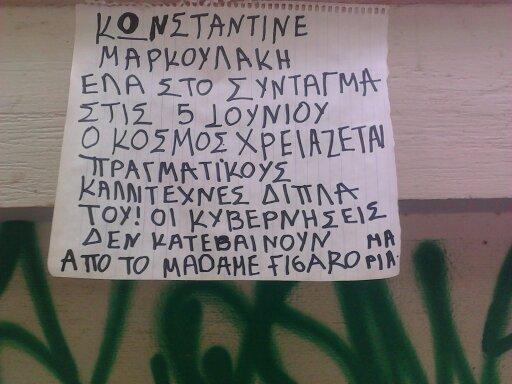 ΚΩΝΣΤΑΝΤΙΝΕ
ΜΑΡΚΟΥΛΑΚΗ
ΕΛΑ ΣΤΟ ΣΥΝΤΑΓΜΑ
ΣΤΙΣ 5 ΙΟΥΝΙΟΥ
Ο ΚΟΣΜΟΣ ΧΡΕΙΑΖΕΤΑΙ
ΠΡΑΓΜΑΤΙΚΟΥΣ
ΚΑΛΛΙΤΕΧΝΕΣ ΔΙΠΛΑ
ΤΟΥ! ΟΙ ΚΥΒΕΡΝΗΣΕΙΣ
ΔΕΝ ΚΑΤΕΒΑΙΝΟΥΝ
ΑΠΟ ΤΟ MADAME FIGARO
ΜΑ
ΡΙΑ.